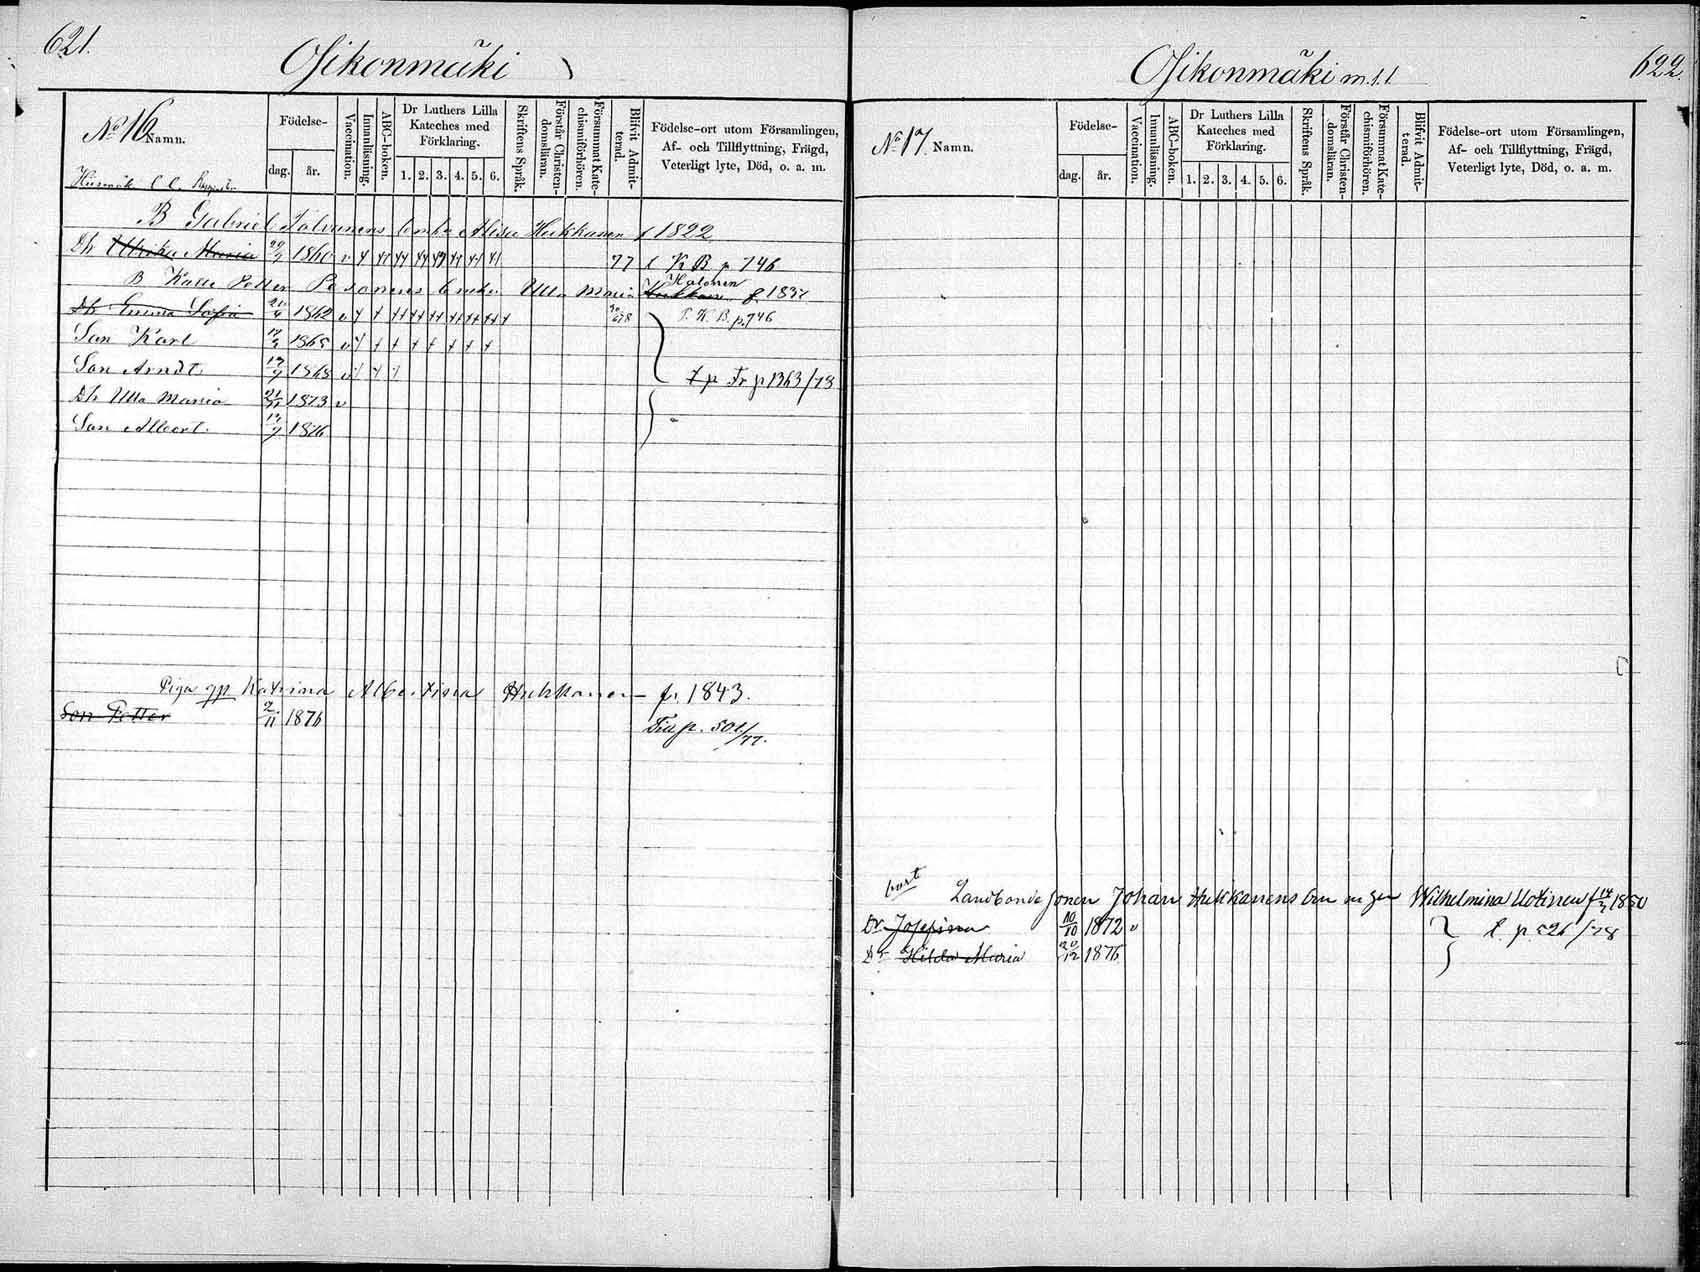 621.
Osikonmäki
No 16 Namn.
Födelse-
dag. år.
Vaccination.
Innanläsning.
ABC-boken.
Dr Luthers Lilla Kateches med Förklaring.
1. 2. 3. 4. 5. 6.
Skriftens Språk.
Förstår Christen-domsläran.
Försummat Kate-chismiförhören.
Blifvit Admit-terad.
Födelse-ort utom Församlingen,
Af- och Tillflyttning, Frägd,
Veterligt lyte, Död, o. a. m.
B Gabriel Tolvanens Enka Alisa Hukkanen f 1822
Dh Ulrika Maria 1860 v 77 t K B p 746
B Kalle Petter Pesonens Enka Ulla Maria Hukkanen Halonen f 1837
Dh Emma Sofia 1862 v T. K. B. p. 746
Son Karl 1865 v
Son Arndt 1868 v t p Fr p 1363/78
Dh Ulla Maria 21/11 1873 v
Son Albert. 1876
Piga gp Katrina Albertina Hukkanen fr. 1843.
Son Petter 2/11 1876 Till p. 501/77.
622.
Osikonmäki m. s. l
No 17. Namn.
Födelse-
dag. år.
Vaccination.
Innanläsning.
ABC-boken.
Dr Luthers Lilla Kateches med Förklaring.
1. 2. 3. 4. 5. 6.
Skriftens Språk.
Förstår Christen-domsläran.
Försummat Kate-chismiförhören.
Blifvit Admit-terad.
Födelse-ort utom Församlingen,
Af- och Tillflyttning, Frägd,
Veterligt lyte, Död, o. a. m.
bort
Landbonde sonen Johan Hukkanens Wilhelmina Uotinen f 14/7 1850
Dr Josefina 10/10 1872 v t. p. 526/78
Dr Hilda Maria 20/12 1876